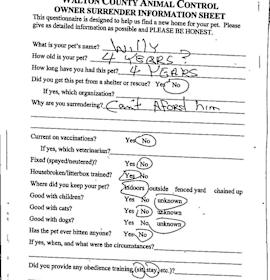 WALTON COUNTY ANIMAL CONTROL
OWNER SURRENDER INFORMATION SHEET
This questionnaire is designed to help us find a new home for your pet. Please
give as detailed information as possible and PLEASE BE HONEST.
What is your pet's name? Willy
How old is your pet? 4 YEARS?
How long have you had this pet? 4 YEARS
Did you get this pet from a shelter or rescue? Yes No
If yes, which organization?
Why are you surrendering? Can't Aford him
Current on vaccinations? Yes No
If yes, which veterinarian?
Fixed (spayed/neutered)? Yes No
Housebroken/litterbox trained? Yes No
Where did you keep your pet? Indoors outside fenced yard chained up
Good with children? Yes No unknown
Good with cats? Yes No unknown
Good with dogs? Yes No unknown
Has the pet ever bitten anyone? Yes No
If yes, when, and what were the circumstances?
Did you provide any obedience training (sit, stay, etc.)?